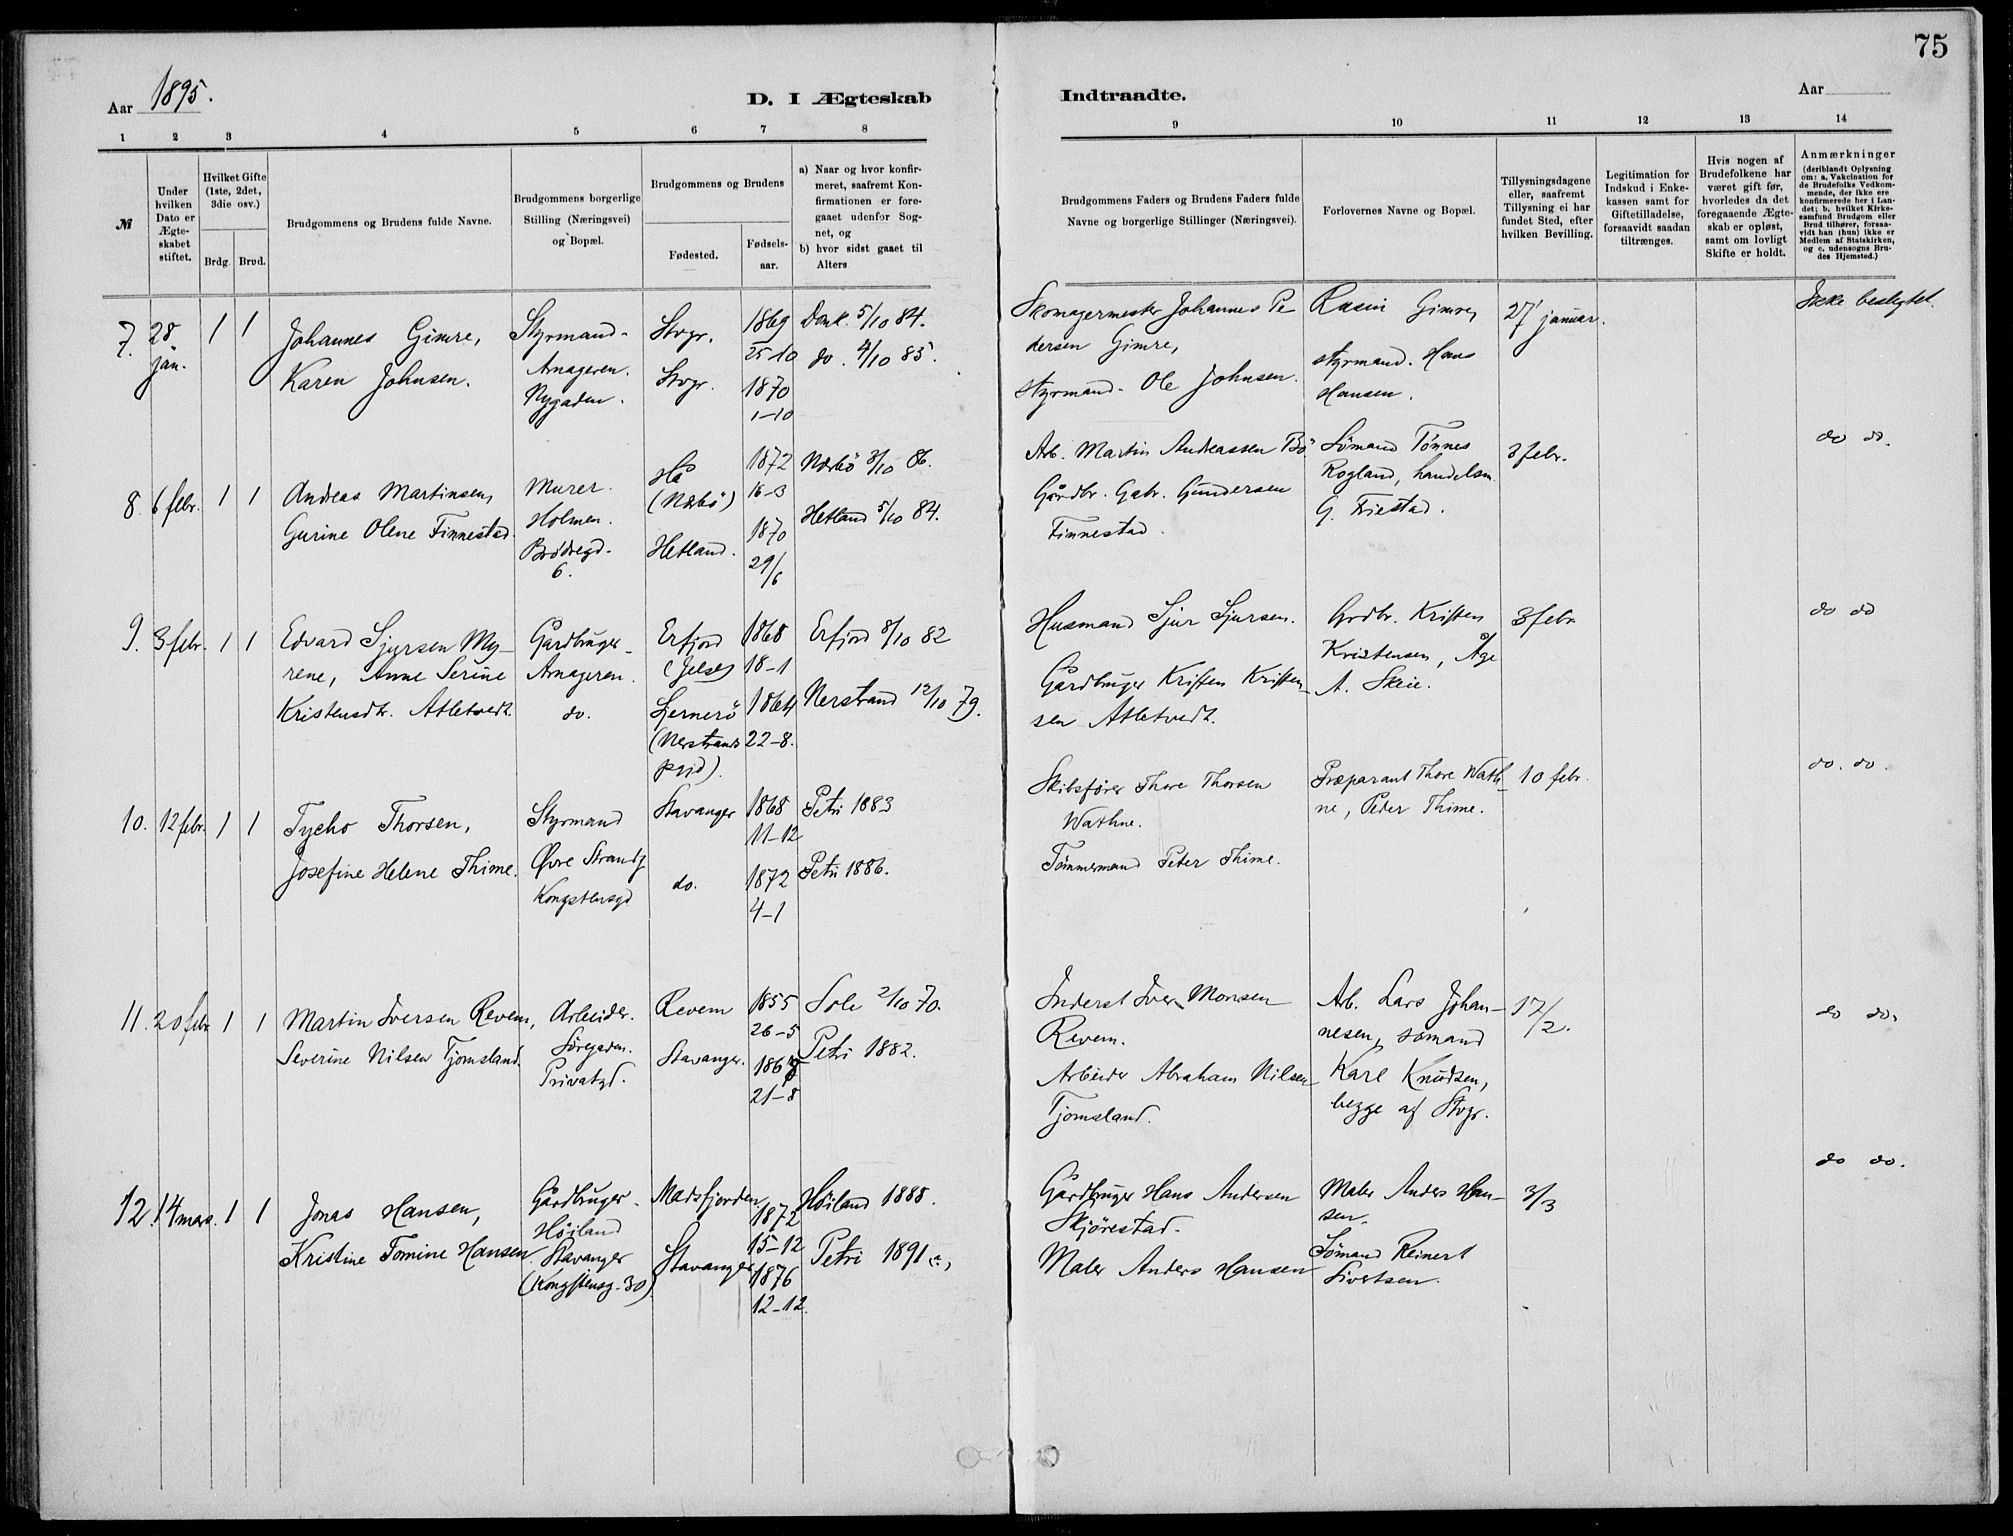 75
Aar 1895.
D. I Ægteskab
Indtraadte.
Aar
1 2 3 4 5 6 7 8
9 10 11 12 13 14
№
Under hvilken Dato er Ægteskabet stiftet.
Hvilket Gifte (1ste, 2det, 3die osv.)
Brdg. Brud.
Brudgommens og Brudens fulde Navne.
Brudgommens borgerlige Stilling (Næringsvei) og Bopæl.
Brudgommens og Brudens
Fødested.
Fødselsaar.
a) Naar og hvor konfirmeret, saafremt Konfirmationen er foregaaet udenfor Sognet, og
b) hvor sidst gaaet til Alters
Brudgommens Faders og Brudens Faders fulde Navne og borgerlige Stillinger (Næringsvei).
Forlovernes Navne og Bopæl.
Tillysningsdagene eller, saafremt Tillysning ei har fundet Sted, efter hvilken Bevilling.
Legitimation for Indskud i Enkekassen samt for Giftetilladelse, forsaavidt saadan tiltrænges.
Hvis nogen af Brudefolkene har været gift før, hvorledes da det foregaaende Ægteskab er opløst, samt om lovligt Skifte er holdt.
Anmærkninger
(deriblandt Oplysning om: a. Vakcination for de Brudefolks Vedkommende, der ikke ere konfirmerede her i Landet; b. hvilket Kirkesamfund Brudgom eller Brud tilhører, forsaavidt han (hun) ikke er Medlem af Statskirken, og c. udensogns Brudes Hjemsted.)
7. 28 jan. 1 1
Johannes Gimre,
Karen Johnsen.
Styrmand-
Arnageren.
Nygaden.
Stvgr.
Stvgr.
1869
25-10
1870
1-10
Domk. 5/10 84.
do. 4/10 85.
Skomagermester Johannes Pe
dersen Gimre,
Styrmand- Ole Johnsen.
Rasin Gimre,
styrmand. Hans
Hansen.
27 januar.
Ikke beslegtet.
8. 6 febr. 1 1
Andreas Martinsen,
Gurine Olene Finnestad.
Murer.
Holmen.
Brødregd-
6.
Hå
(Nærbö)
Hetland.
1872
16-3
1870
29/6
Nærbö 3/10 86.
Hetland 5/10 84.
Arb. Martin Andreassen Bö
Gårdbr. Gabr. Gundersen
Finnestad.
Sömand Tönnes
Rogland, handelsm.
G. Friestad.
3 febr.
do do.
9. 3 febr. 1 1
Edvard Sjursen My-
rene, Anne Serine
Kristensdtr. Atletvedt.
Gårdbruger-
Arnageren.
do.
Erfjord
(Jelse)
Sjernerö
(Nerstrands
prgjd).
1868
18-1
1864
22-8.
Erfjord 8/10 82
Nerstrand 12/10 79.
Husmand Sjur Sjursen.
Gårdbruger Kristen Kristen-
sen Atletvedt.
Grdbr. Kristen
Kristensen, Åge
A. Skeie.
3 febr
do do
10. 12 febr. 1 1
Tycho Thorsen,
Josefine Helene Thime.
Styrmand
Øvre Strandg
Kongstensgd
Stavanger
do.
1868
11-12
1872
4-1
Petri 1883
Petri 1886.
Skibsfører Thore Thorsen
Wathne.
Tömmermand Peter Thime.
Præparant Thore Wath-
ne, Peder Thime.
10 febr.
do. do.
11. 20 febr. 1 1
Martin Iversen Revem,
Severine Nilsen Tjomsland.
Arbeider.
Söregaden.
Privatgd.
Revem
Stavanger.
1855
26-5
21-8
Sole 2/10 70.
Petri 1882.
Inderst Iver Monsen
Revem.
Arbeider Abraham Nilsen
Tjomsland.
Arb. Lars Johan-
nesen, sömand
Karl Knudsen,
begge af Stvgr.
17/2.
do do.
12. 14 mars. 1 1
Jonas Hansen,
Kristine Tomine Hansen
Gårdbruger.
Höiland
Stavanger
(Kongstensg. 30).
Madsfjorden
Stavanger
1872
15-12
1876
12-12.
Höiland 1888.
Petri 1891
Gårdbruger Hans Andersen
Skjörestad.
Maler Anders Hansen
Maler Anders Han-
sen.
Sömand Reinert
Sivertsen.
3/3
do do.